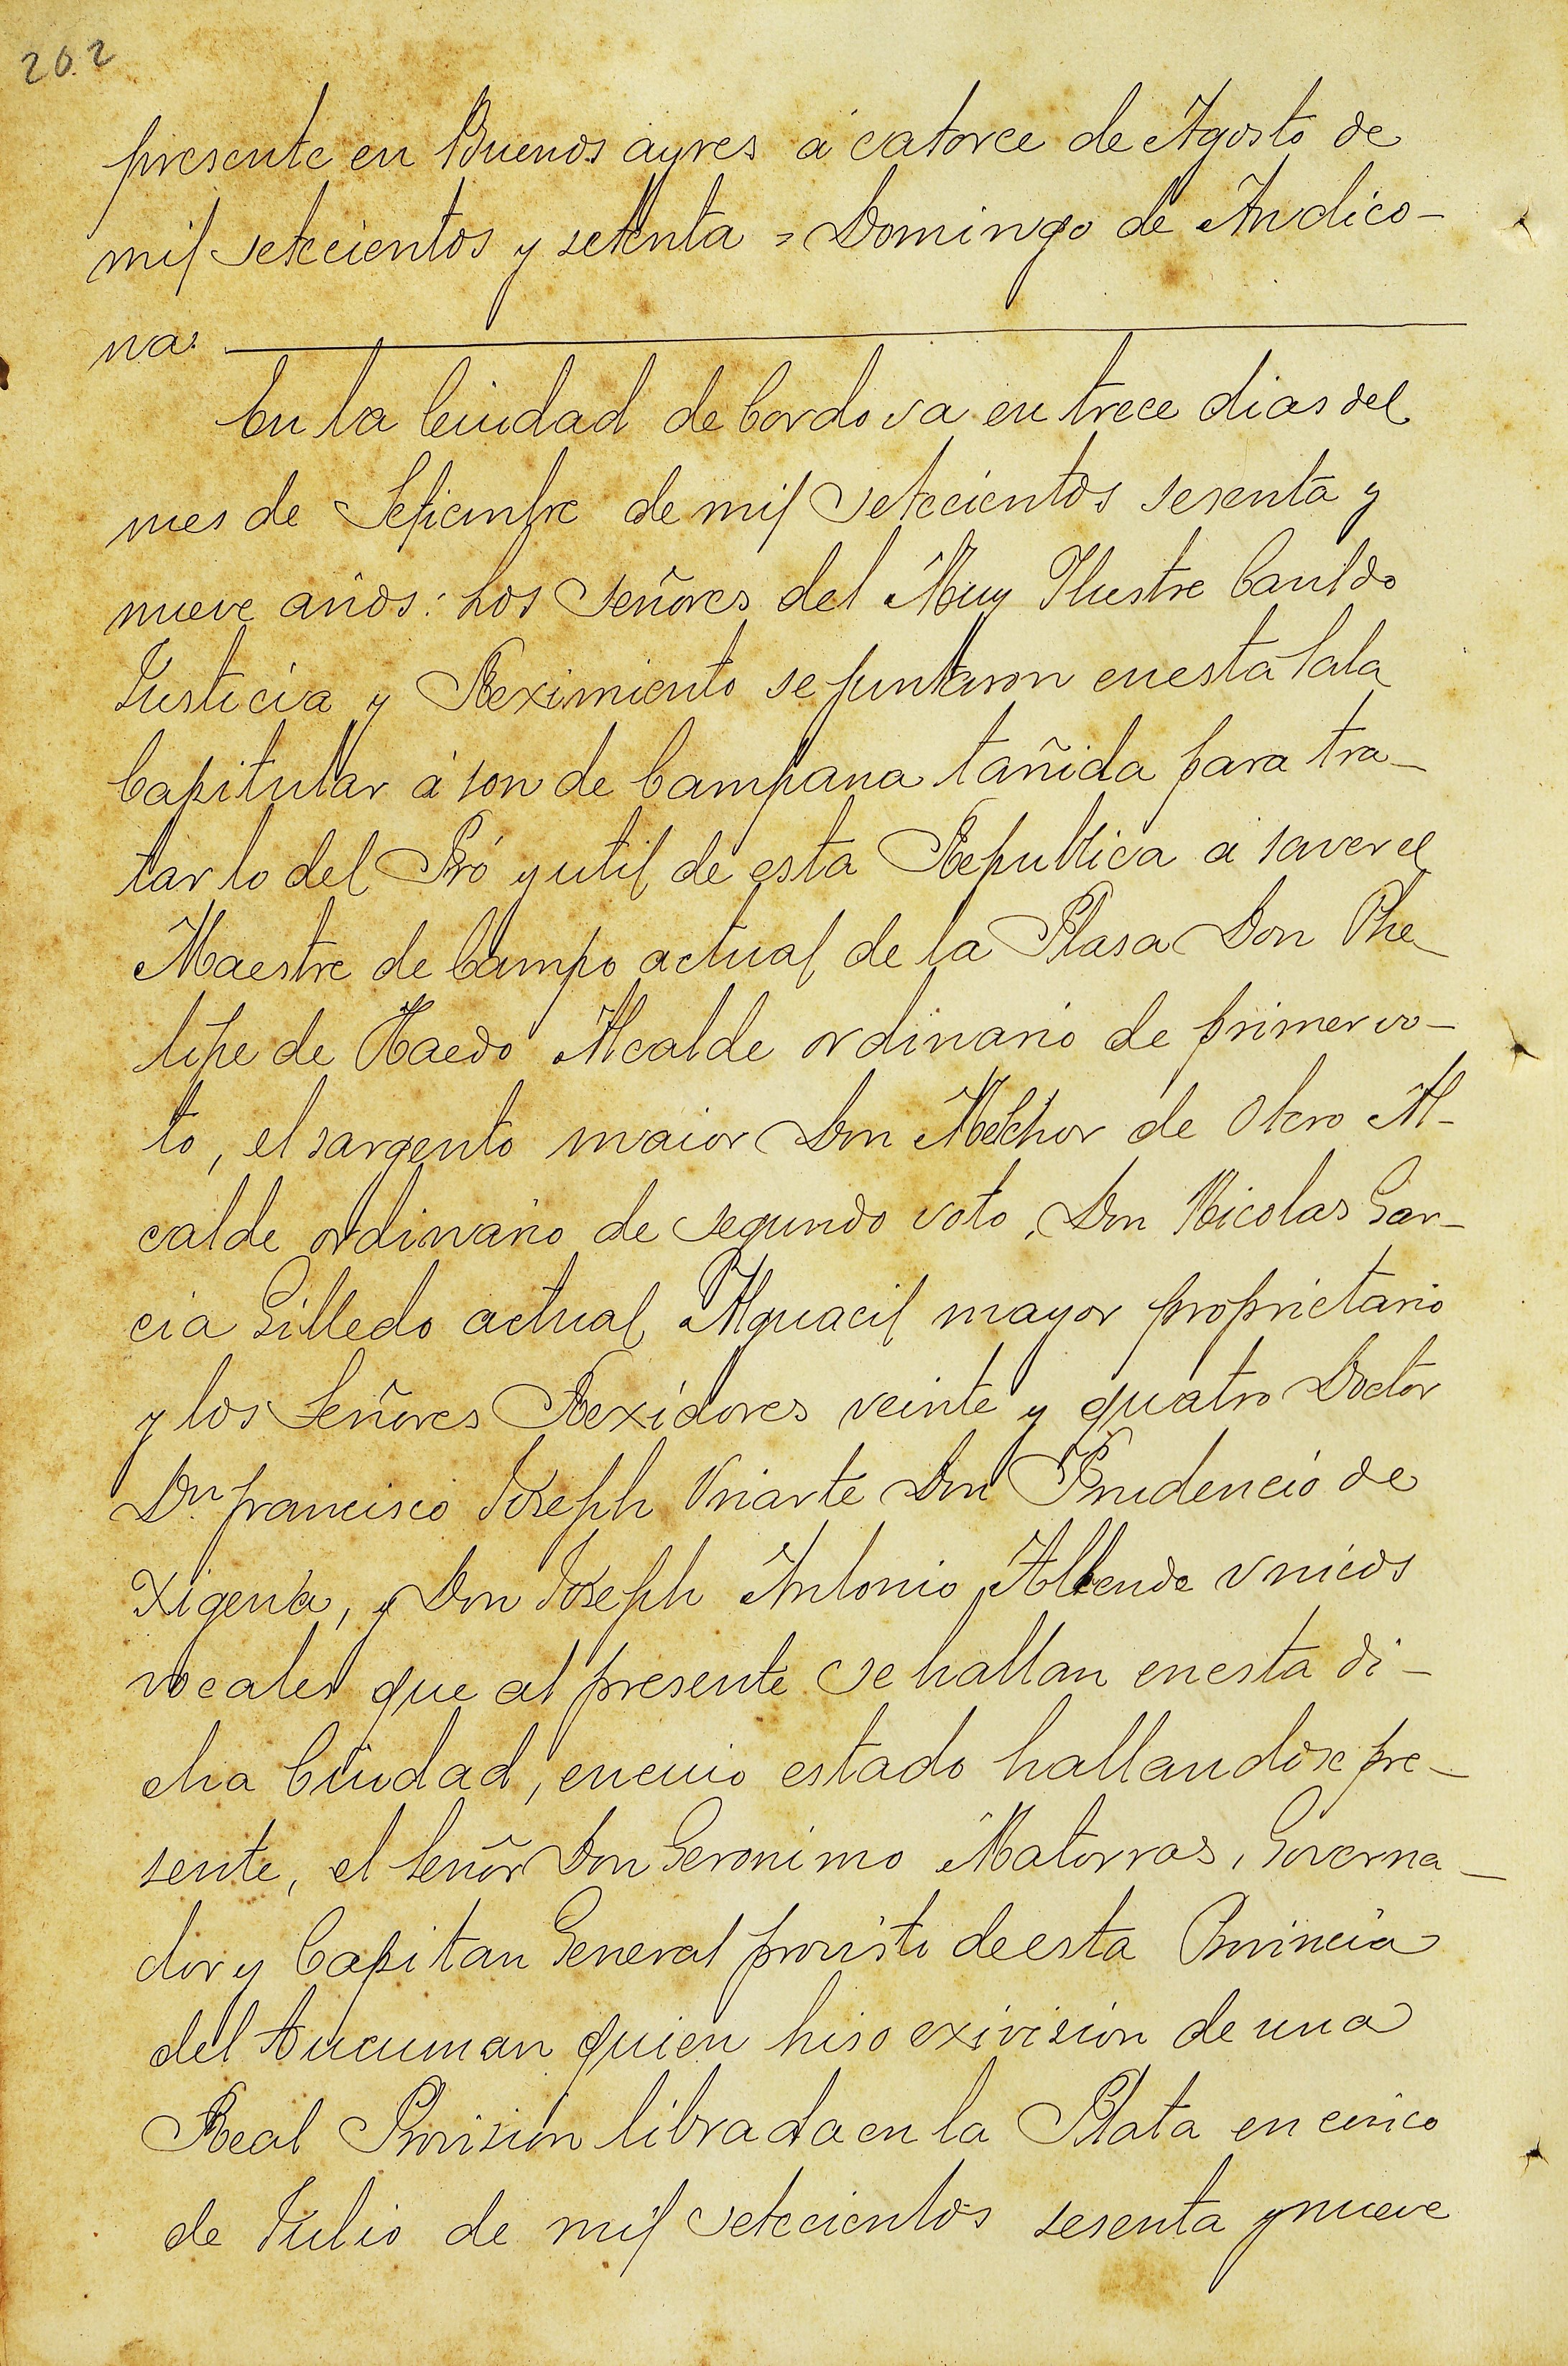 202
presente en Buenos ayres á catorce de Agosto de
mil setecientos y setenta = Domingo de Andico-
na.
En la Ciudad de Cordova en trece dias del
mes de Septiembre de mil setecientos sesenta y
nueve años: Los Señores del Muy Ilustre Cavildo
Justicia y Reximiento se juntaron en esta Sala
Capitular á son de Campana tañida para tra-
tar lo del Pró y util de esta Republica á saver el
Maestre de Campo actual de la Plasa Don Phe-
lipe de Haedo Alcalde ordinario de primer vo-
to, el sargento maior Don Melchor de Otero Al-
calde ordinario de segundo voto, Don Nicolas Gar-
cia Gilledo actual Alguacil mayor proprietario
y los Señores Rexidores veinte y quatro Doctor
Dn. francisco Joseph Uriarte Don Prudencio de
Xigena, y Don Joseph Antonio Allende vnicos
vocales que al presente se hallan en esta di-
cha Ciudad, en cuio estado hallandose pre-
sente, el Señor Don Geronimo Matorras, Governa-
dor y Capitan General provisto de esta Provincia
del tucuman quien hiso exivision de una
Real Provision librada en la Plata en cinco
de Julio de mil setecientos sesenta y nueve